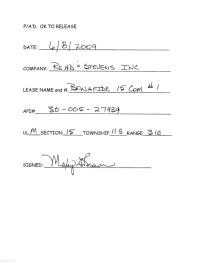 P/AD. OK TO RELEASE
DATE: 6/8/2009
COMPANY: READ & STEVENS INC
LEASE NAME and #. BONAFIDE 15 Com #1
API# 30-005-27934
UL M SECTION 15 TOWNSHIP 11S RANGE 31E
SIGNED: